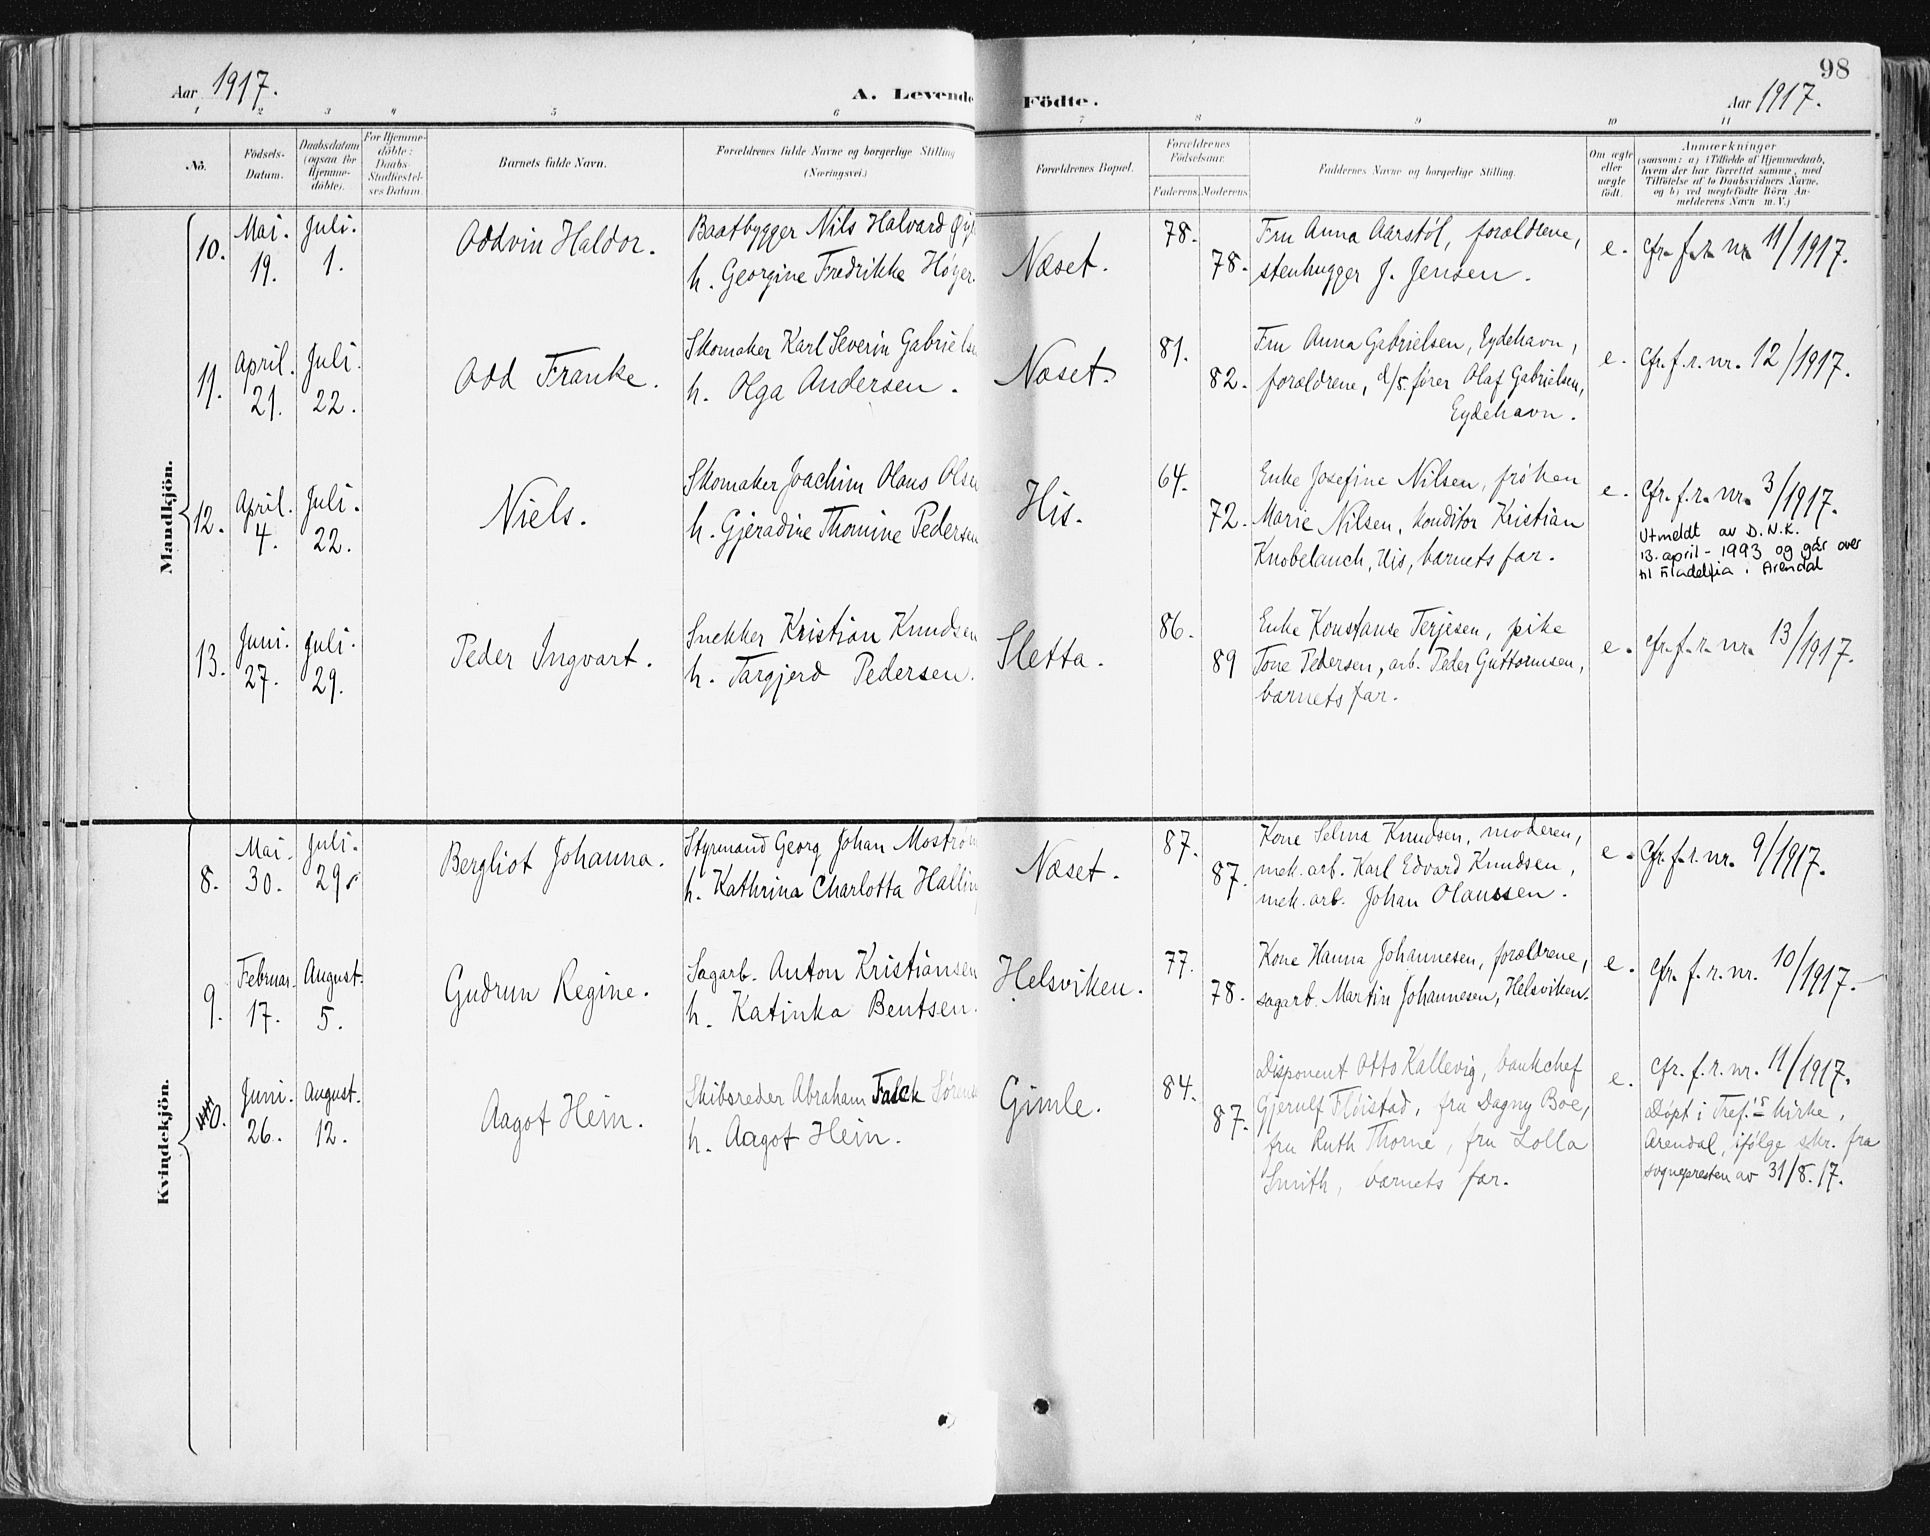 98
Aar 1917.
A. Levende Födte.
Aar 1917.
1 2 3 4 5 6 7 8 9 10 11
Nö.
Födsels-
Datum.
Daabsdatum
(ogsaa for
Hjemme-
döbte).
For Hjemme-
döbte:
Daabs-
Stadfæstel-
ses Datum.
Barnets fulde Navn.
Forældrenes fulde Navne og borgerlige Stilling
(Næringsvei.)
Forældrenes Bopæl.
Forældrenes
Födselsaar.
Faderens. Moderens.
Faddernes Navne og borgerlige Stilling.
Om ægte
eller
uægte
født.
Anmærkninger
(saasom: a) i Tilfælde af Hjemmedaab,
hvem der har forrettet samme, med
Tilföielse af to Daabsvidners Navne,
og b) ved uægtefödte Börn An-
melderens Navn m. V.)
Mandkjön.
10.
Mai.
19.
Juli.
1.
Oddvin Haldor.
Baatbygger Nils Halvard
h. Georgine Fredrikke Høyer.
Næset.
78.
78.
Fru Anna Aarstøl, forældrene,
stenhugger J. Jensen.
e.
Cfr. f.r. nr 11/1917.
11.
April.
21.
Juli.
22.
Odd Franke.
Skomaker Karl Severin Gabrielse
h. Olga Andersen.
Næset.
81.
82.
Fru Anna Gabrielsen, Eydehavn,
forældrene, d/s. fører Olaf Gabrielsen,
Eydehavn.
e.
Cfr. f. r. nr. 12/1917.
12.
April.
4.
Juli.
22.
Niels.
Skomaker Joachim Olaus Olse
h. Gjeradine Thomine Pedersen
His.
64.
72.
Enke Josefine Nilsen, frøken
Marie Nilsen, konditor Kristian
Knobelauch, His, barnets far.
e.
Cfr. f. r. nr. 3/1917.
Utmeldt av D.N.K.
13. april - 1993 og går over
til Filadelfia i Arendal
13.
Juni.
27.
Juli.
29.
Peder Ingvart.
Snekker Kristian Knudsen
h. Targjerd Pedersen.
Sletta.
86.
89
Enke Konstanse Terjesen, pike
Tone Pedersen, arb. Peder Guttormsen,
barnets far.
e.
Cfr. f. r. nr. 13/1917.
Kvindekjön.
8.
Mai.
30.
Juli.
29.
Bergliot Johanna.
Styrmand Georg Johan Mostrøm
h. Kathrina Charlotta Halling
Næset.
87.
87.
Kone Selma Knudsen, moderen,
mek. arb. Karl Edvard Knudsen,
mek. arb. Johan Olaussen.
e.
Cfr. f. r. nr. 9/1917.
9.
Februar.
17.
August.
5.
Gudrun Regine.
Sagarb. Anton Kristiansen
h. Katinka Bentsen.
Helsviken.
77.
78.
Kone Hanna Johannesen, forældrene,
sagarb. Martin Johannesen, Helsviken.
e.
Cfr. f. r. nr. 10/1917.
10.
Juni.
26.
August.
12.
Aagot Hein.
Skibsreder Abraham Falck Sørense
h. Aagot Hein.
Gimle.
84.
87.
Disponent Otto Kallevig, bankchef
Gjerulf Fløistad, fru Dagny Boe,
fru Ruth Thorne, fru Lolla
Smith, barnets far.
e.
Cfr. f. r. nr. 11/1917.
Døpt i Tref.'s kirke,
Arendal, ifølge skr. fra
sognepresten av 31/8. 17.